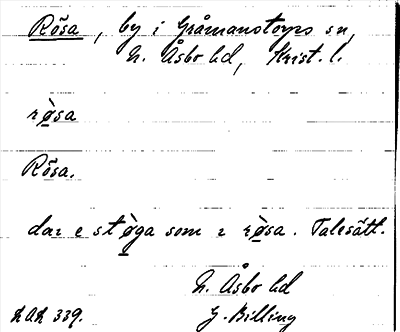 Rösa, by i Gråmanstorps sn,
N. Åsbo hd, Krist. l.
rø̀sa
Rösa.
dær e støga som i rø̀sa. Talesätt.
N. Åsbo hd
LAL 339. G. Billing